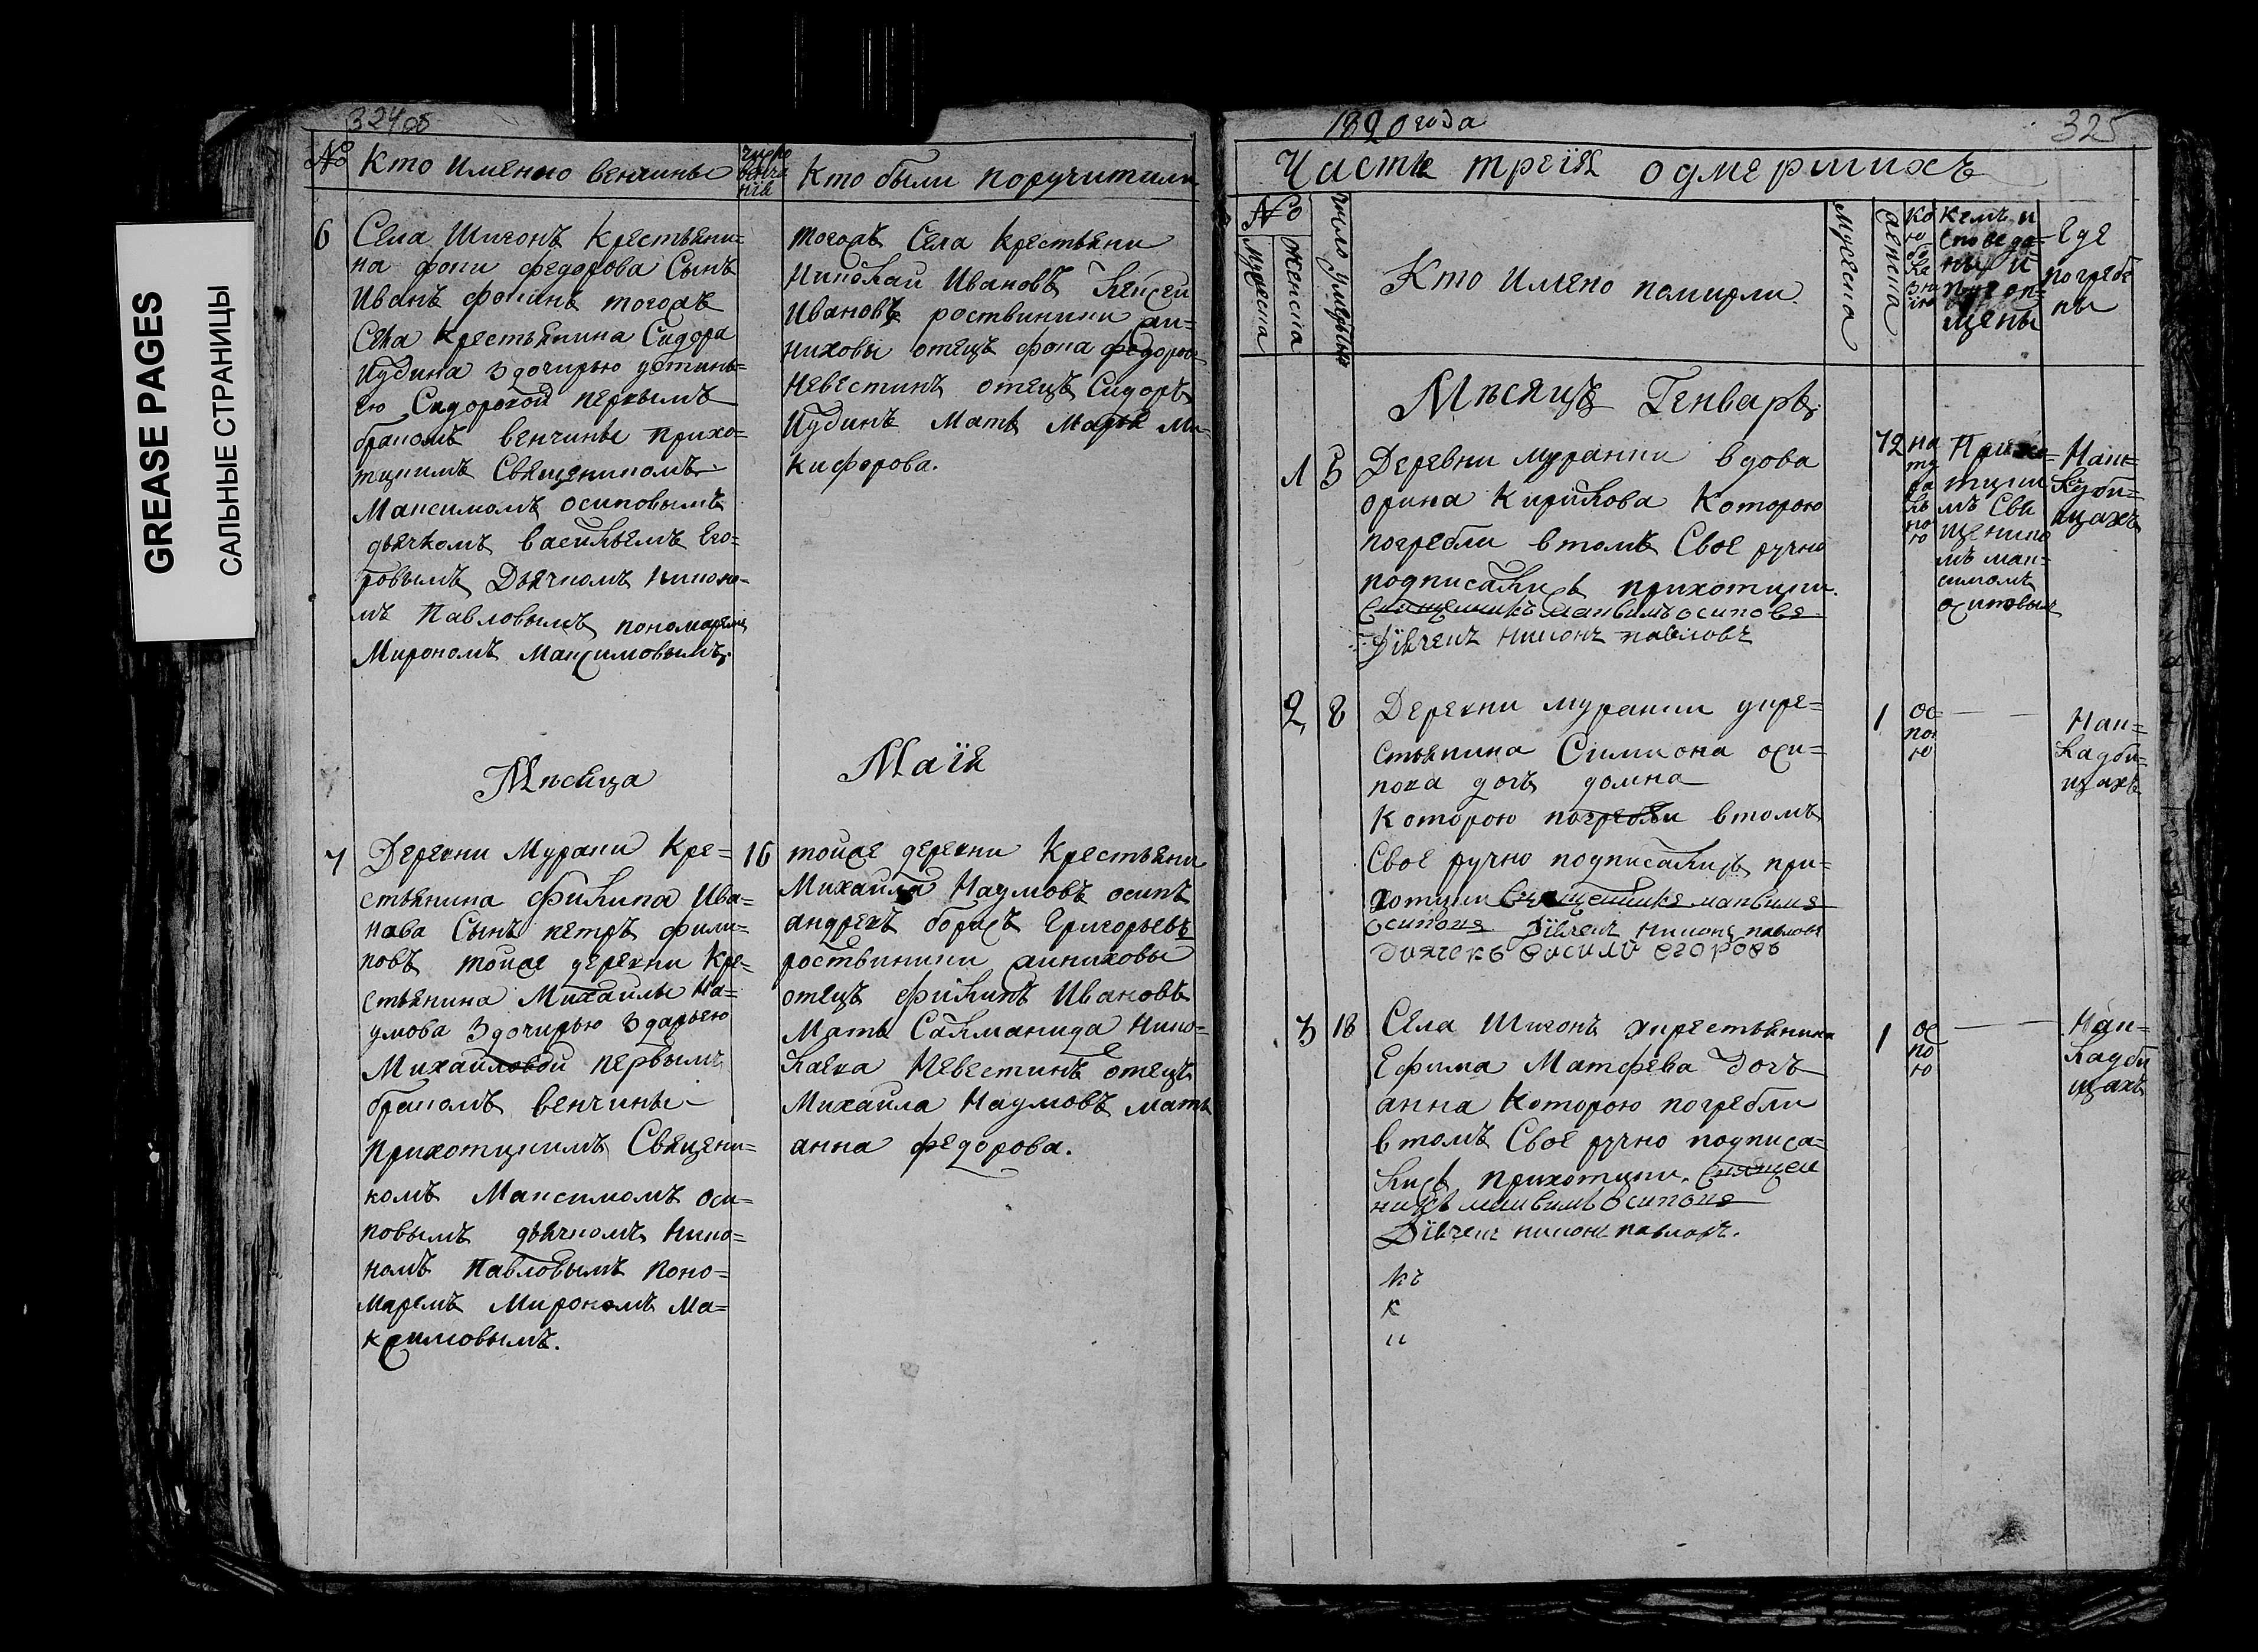 GREASE PAGES
САЛЬНЫЕ СТРАНИЦЫ
324 об
№
Кто именно венчины
число венчанія
Кто были поручитили
6
Села Шигонъ Крестьяни=
на фоки федорова Сынъ
Иванъ фокинъ тогожъ
Села Крестьянина Сидора
Иудина здочирью устинь=
ею Сидоровой первымъ
бракомъ венчины прихо=
тцкимъ Священикомъ
Максимомъ осиповымъ
дьячкомъ васильемъ Его=
ровымъ Дьячкомъ Никоно=
мъ Павловымъ пономаремъ
Мирономъ Максимовымъ.
тогожъ Села Крестьяни
Николай Ивановъ Алексей
Ивановъ роствиники жи=
ниховы отецъ фока федоровъ
Невестинъ отецъ Сидоръ
Иудинъ Мать Марья Ми=
кифорова.
Месяца
Маія
7
Деревни Мурани Кре=
стьянина филипа Ива=
нава Сынъ петръ фили=
повъ тойже деревни Кре=
стьянина Михайлы На=
умова здочирью здарьею
Михайловой первымъ
бракомъ венчины
прихотцкимъ Священи=
комъ Максимомъ оси=
повымъ дьячкомъ Нико=
номъ Павловымъ поно=
маремъ Мирономъ Ма=
ксимовымъ.
16
тойже деревни Крестьяни
Михайла Наумовъ осипъ
андреевъ борисъ Григорьевъ
роствиники жиниховы
отецъ филипъ Ивановъ
Мать Саламанида Нико=
лаева Невестинъ отецъ
Михайла Наумовъ мать
анна федорова.
1820 года
325
Часть третія оумершихъ
№
Мужеска
Женска
число умертія
Кто Имено помирли
Мужеска
женска
Кемъ и
споведа=
ны и
приоп=
щены
Где
погребе
ны
Месяцъ Генварь.
1
5
Деревни муранки вдова
орина Кирилова Которою
погребли втомъ Свое ручно
подписались прихотцки.
Священникъ максимъ осиповъ
Діячекъ никонъ павловъ
72
на
ту
ра
ль
но
ю
Прихо=
тцким
мъ Свя
щенико
мъ мак=
симомъ
осиповым
Нак=
ладби=
щахъ
2
8
Деревни муранки укре=
стьянина Симиона оси=
пова дочь домна
Которою погребли втомъ
Свое ручно подписались при=
хотцки Священникъ максимъ
осиповъ Діячекъ никонъ павловъ
Диячекъ Василй егоровъ
1
ос
по
ю
Нак=
ладби=
щахъ
3
18
Села Шигонъ укрестьянина
Ефима Матфева Дочъ
анна Которою погребли
втомъ Свое ручно подписа=
лись прихотцки. Священ
никъ максимъ осиповъ
Діячекъ никонъ павловъ.
1
ос
по
ю
Нак=
ладби
щахъ
къ
к
и